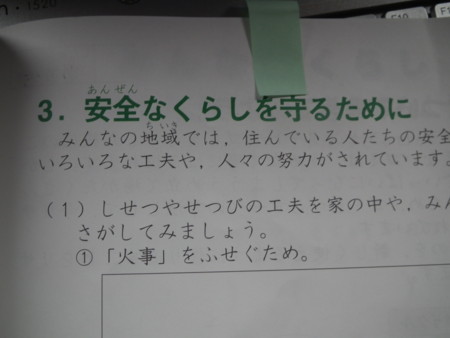 ・1520
F10
あんぜん
3．安全なくらしを守るために
ちいき
みんなの地域では，住んでいる人たちの安全
いろいろな工夫や，人々の努力がされています。
（1）しせつやせつびの工夫を家の中や，みん
さがしてみましょう。
①「火事」をふせぐため。